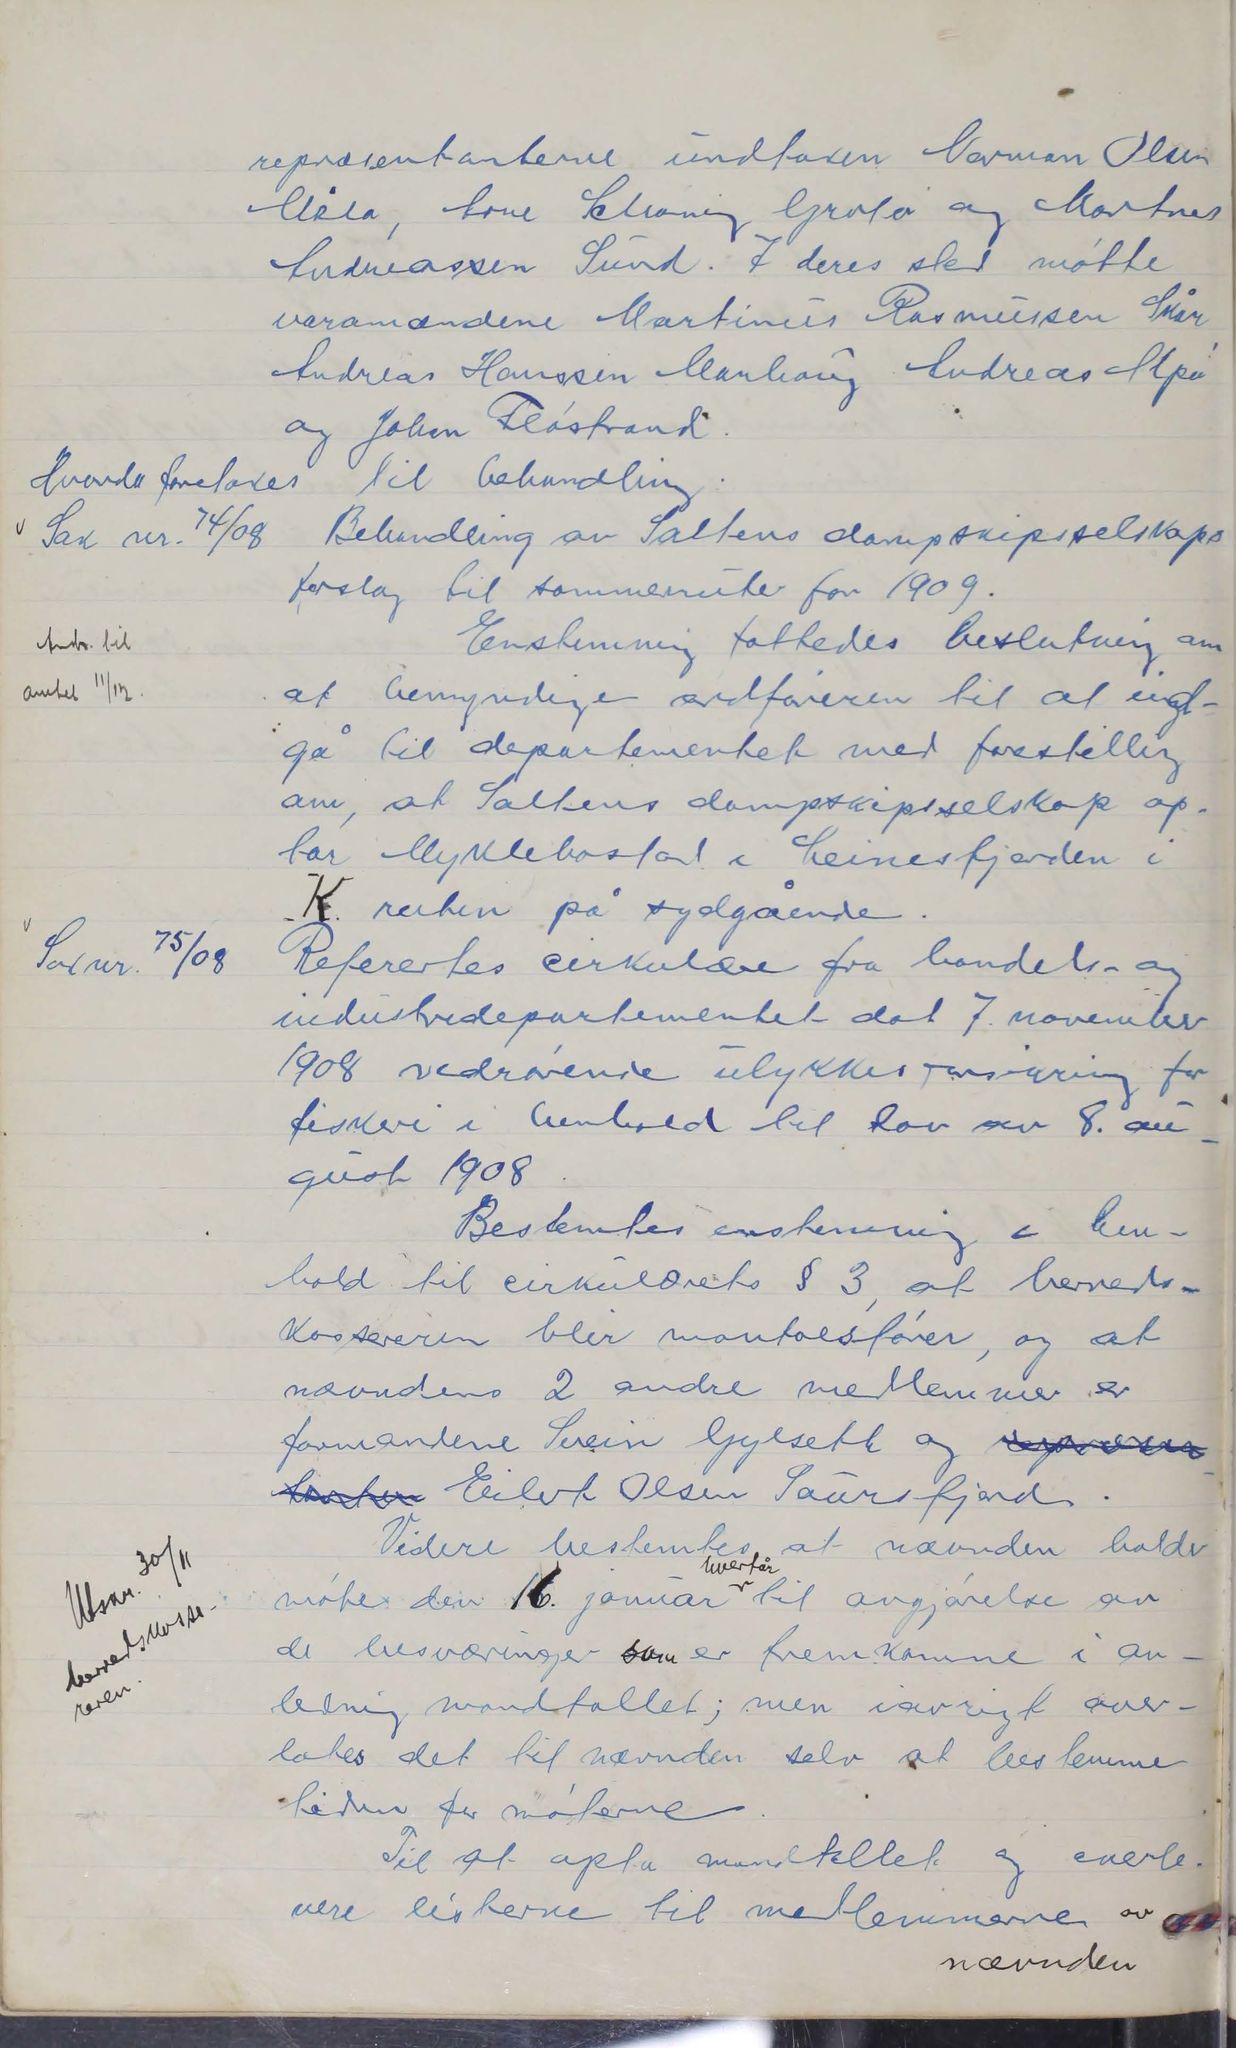 repræsentanterne undtaken Norman Olsen
Måla, Arne Schøning Grøtø og Martnes
Andreassen Sund. I deres sted møtte
varamændene Martinus Rasmussen Skår
Andreas Hanssen Marhaug Andreas Alpø
og Johan Fløstrand.
Hvorda foretokes til behandling:
Sak nr. 74/08 Behandling av Saltens dampskipsselskaps
forslag til sommerruter for 1909.
Enstemmig fattedes beslutning om
Andr. til
amtet 11/12.
at bemyndige ordføreren til at ind-
gå til departementet med forestilling
om, at Saltens dampskipsselskap op-
tar Myklebostad i Leinesfjorden i
K. ruten på sydgående.
Sak nr. 75/08 Referertes cirkulære fra handels- og
industridepartementet dat 7. november
1908 vedrørende ulykkesforsikring for
fiskere i henhold til lov av 8. au-
gust 1908.
Bestemtes enstemmig i hen-
hold til cirkulærets § 3, at herreds-
kassereren blir mantalsfører, og at
nævndens 2 andre medlemmer er
formændene Svein Gylseth og repræsen-
tanten Eilert Olsen Saursfjord.
Videre bestemtes at nævnden holder
møte den 16. januar hvert år til avgjørelse av
Utskr. 30/11
herredskasse-
reren.
de besværinger som er fremkomne i an-
ledning mandtallet; men iøvrigt over-
lates det til nævnden selv at bestemme
tiden for møterne.
Til at opta mandtallet og overle-
vere listerne til medlemmerne av
nævnden